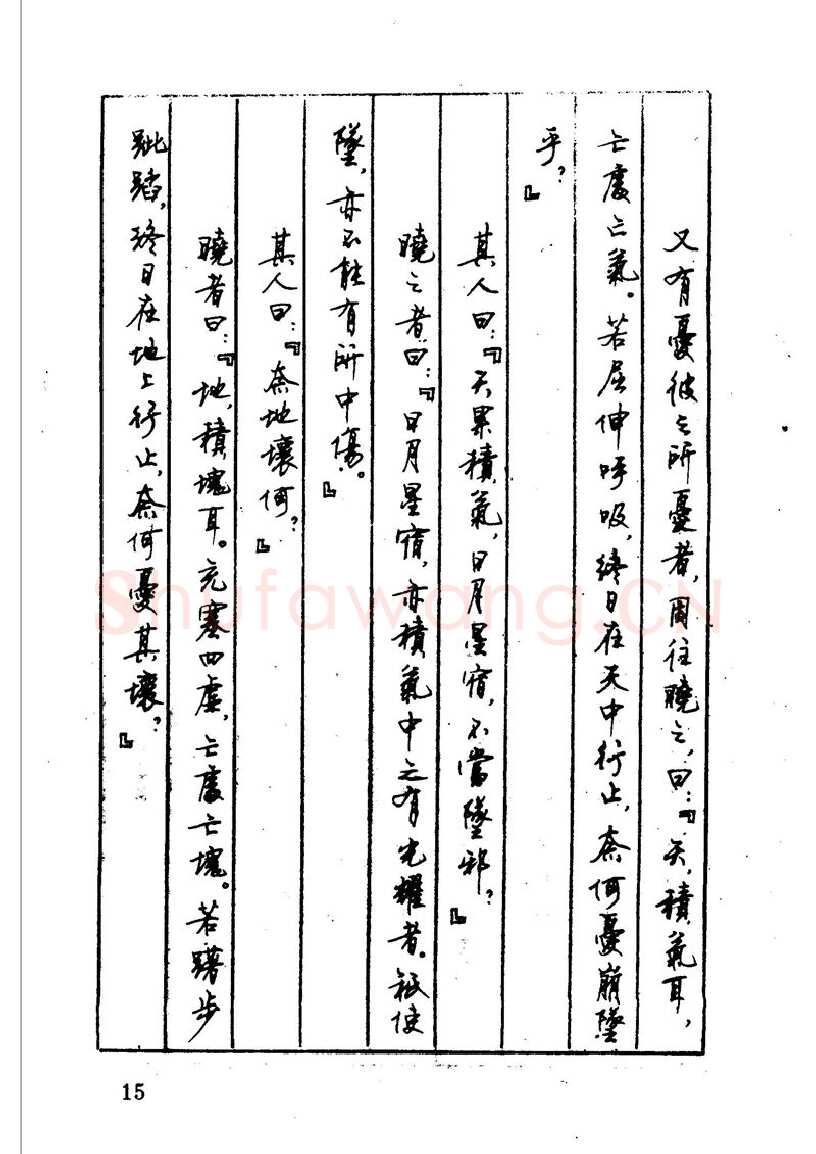 又有憂彼之所憂者，因往曉之，曰：『天，積氣耳，
亡處亡氣。若屈伸呼吸，終日在天中行止，奈何憂崩墜
乎？』
其人曰：『天果積氣，日月星宿，不當墜邪？』
曉之者曰：『日月星宿，亦積氣中之有光耀者。祇使
墜，亦不能有所中傷。』
其人曰：『奈地壞何？』
曉者曰：『地，積塊耳。充塞四虛，亡處亡塊。若躇步
跐蹈，終日在地上行止，奈何憂其壞？』
Shufawang.CN
15